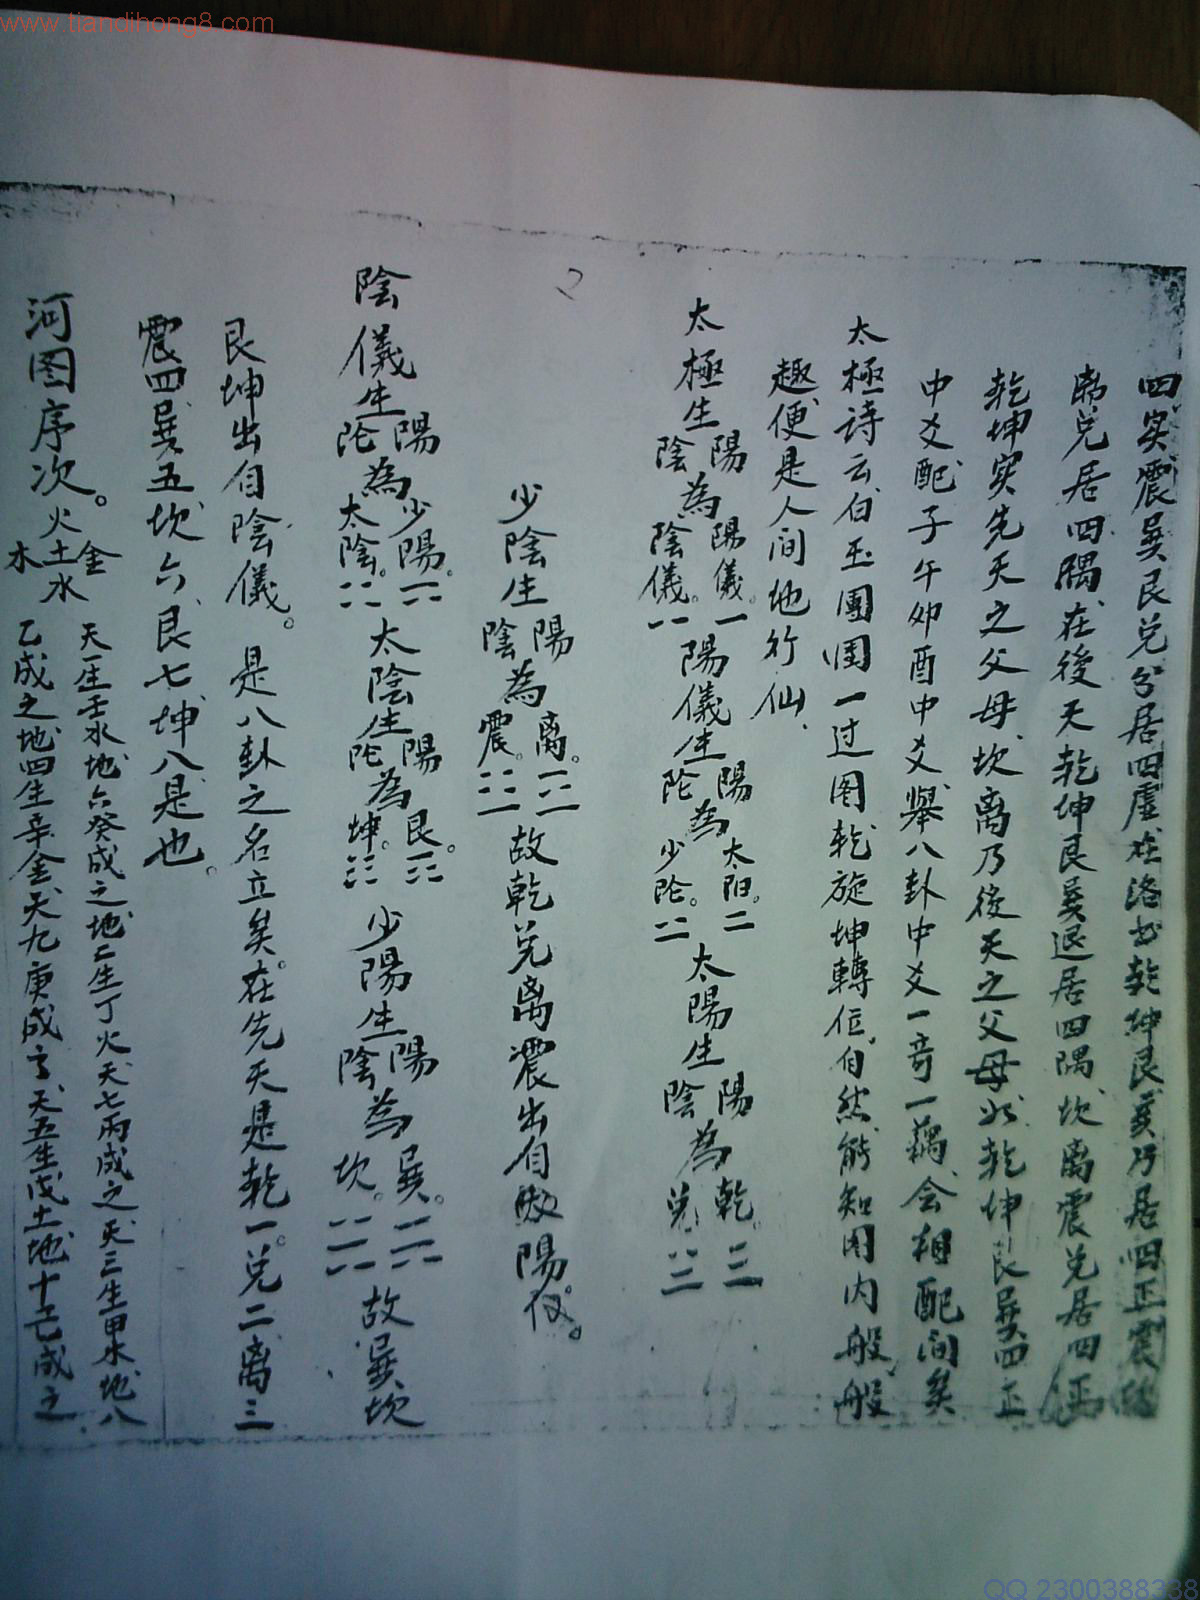 www.tiandihong8.com
四实震巽艮兑分居四虚在洛书乾坤艮巽乃居四正震
离兑居四隅在後天乾坤艮巽退居四隅坎离震兑居四正
乾坤实先天之父母坎离乃後天之父母此乾坤艮巽四正
中爻配子午卯酉中爻舉八卦中爻一奇一藕会相配间矣
太極诗云白玉團圑一过图乾旋坤轉位自然能知图内般般
趣便是人间地行仙
太極生陽陰為陽儀。一陰儀。-- 陽儀生陽阴為太阳。二少阴。 太陽生陽陰為乾。三兑
少陰生陽陰為离。震。 故乾兑离震出自於陽仪。
陰儀生陽阴為少陽。太陰。 太陰生陽阴為艮。坤。 少陽生陽陰為巽。坎。 故巽坎
艮坤出自陰儀。是八卦之名立矣。在先天是乾一。兑二离三
震四巽五坎六艮七坤八是也。
河图序次。火木土金水 天一生壬水地六癸成之地二生丁火天七丙成之天三生甲木地八
乙成之地四生辛金天九庚成之天五生戊土地十己成之
2
QQ 2300388338